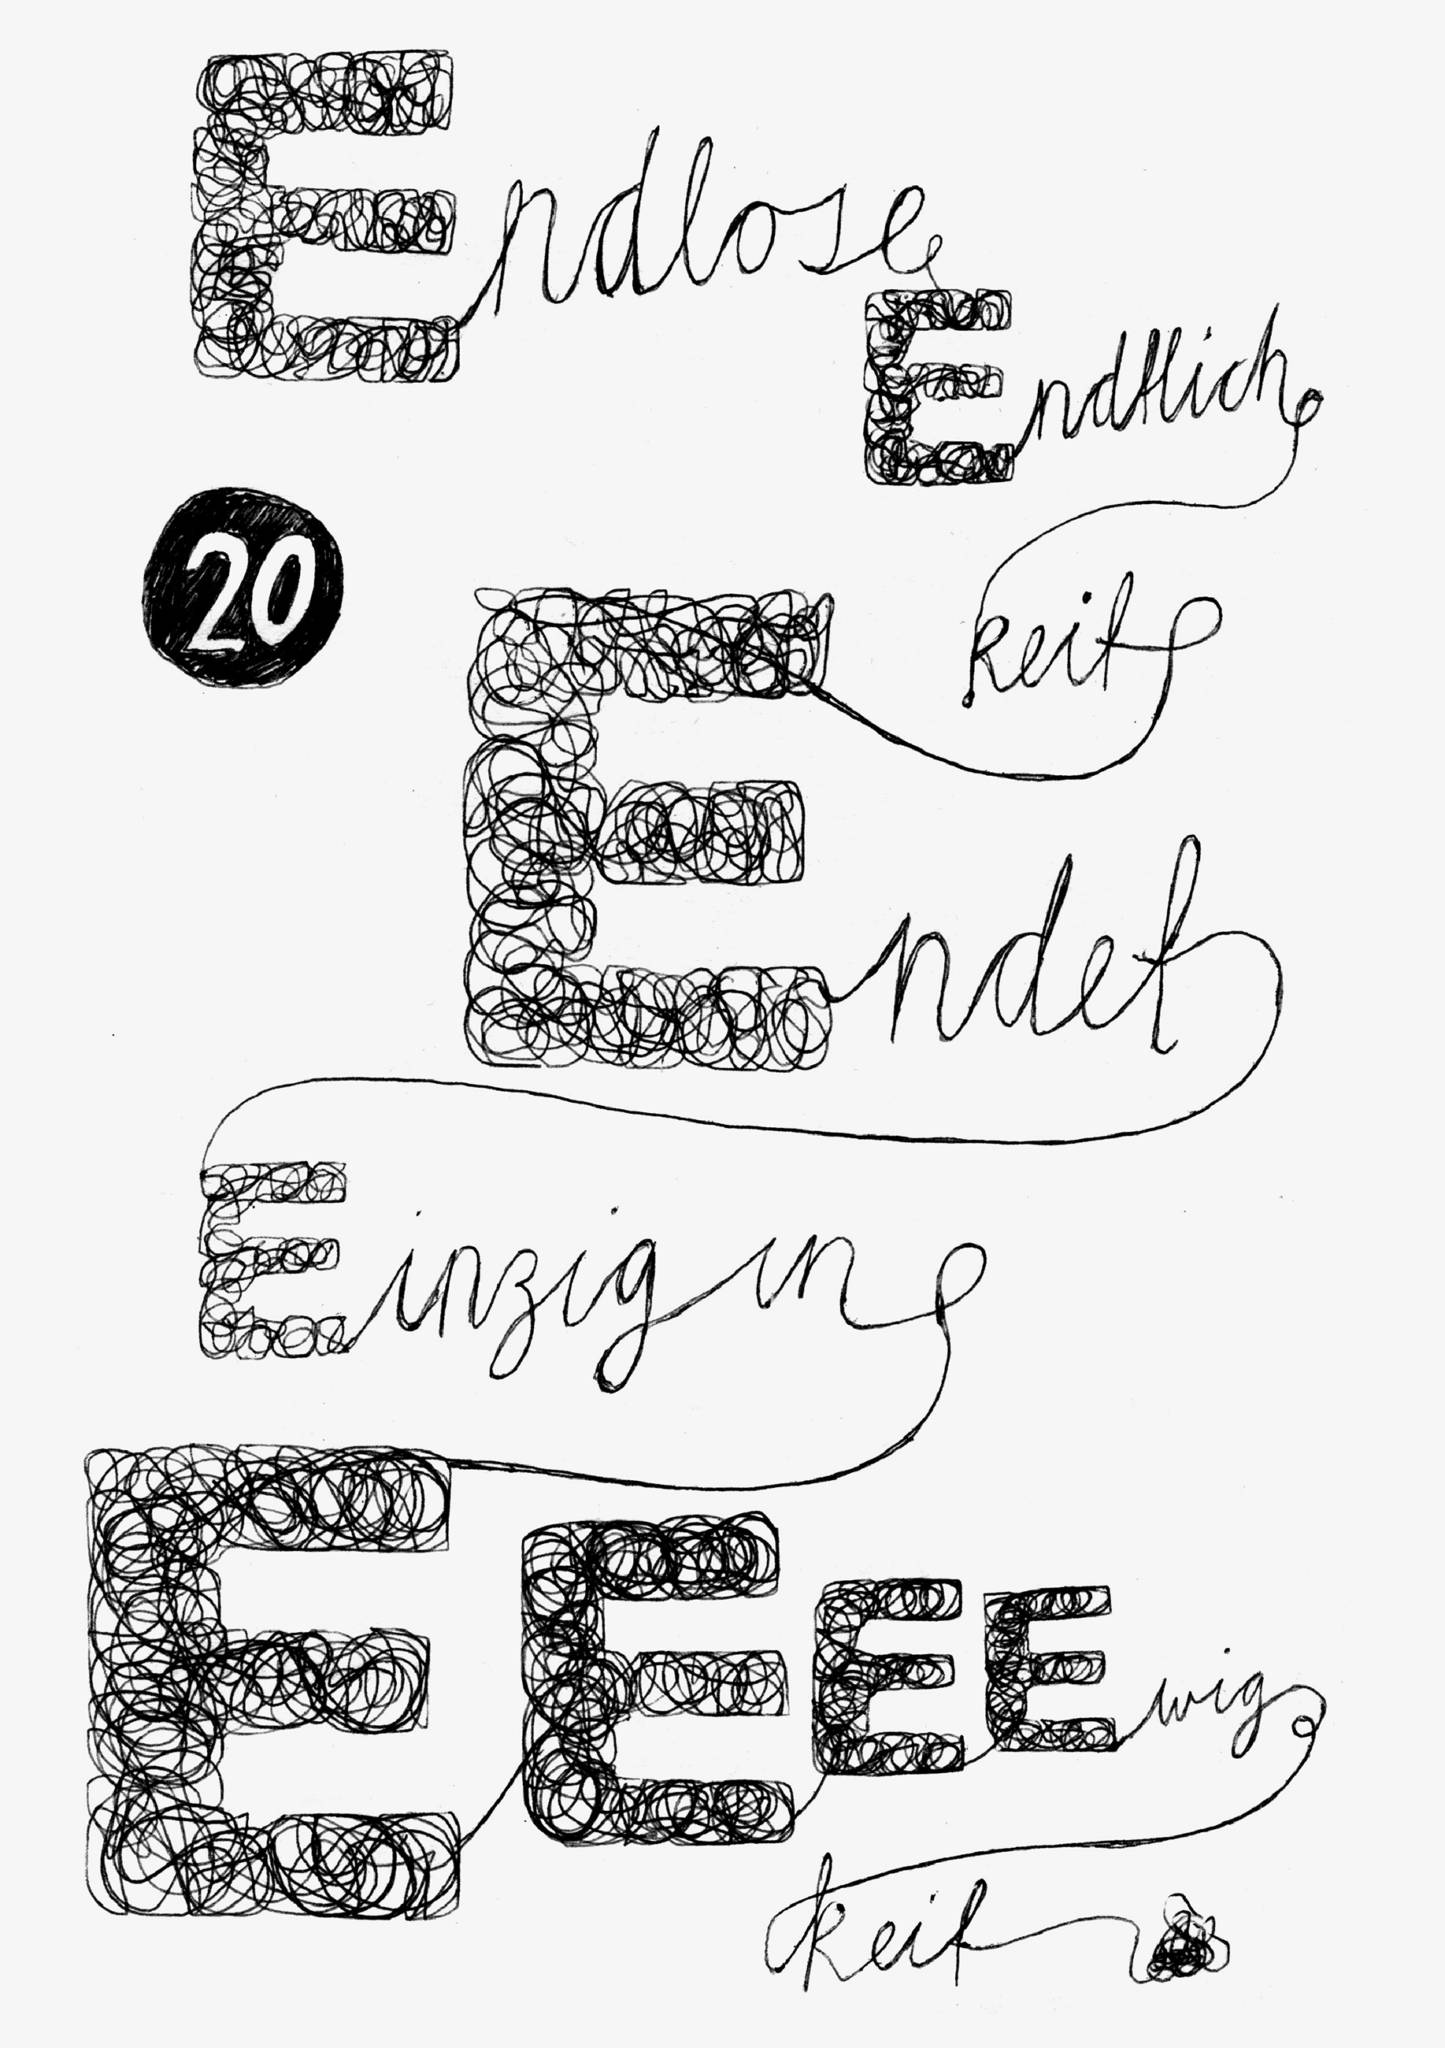 Endlose
Endtlich
keit
20
Endet
Einzig in
EEEEwig
keit